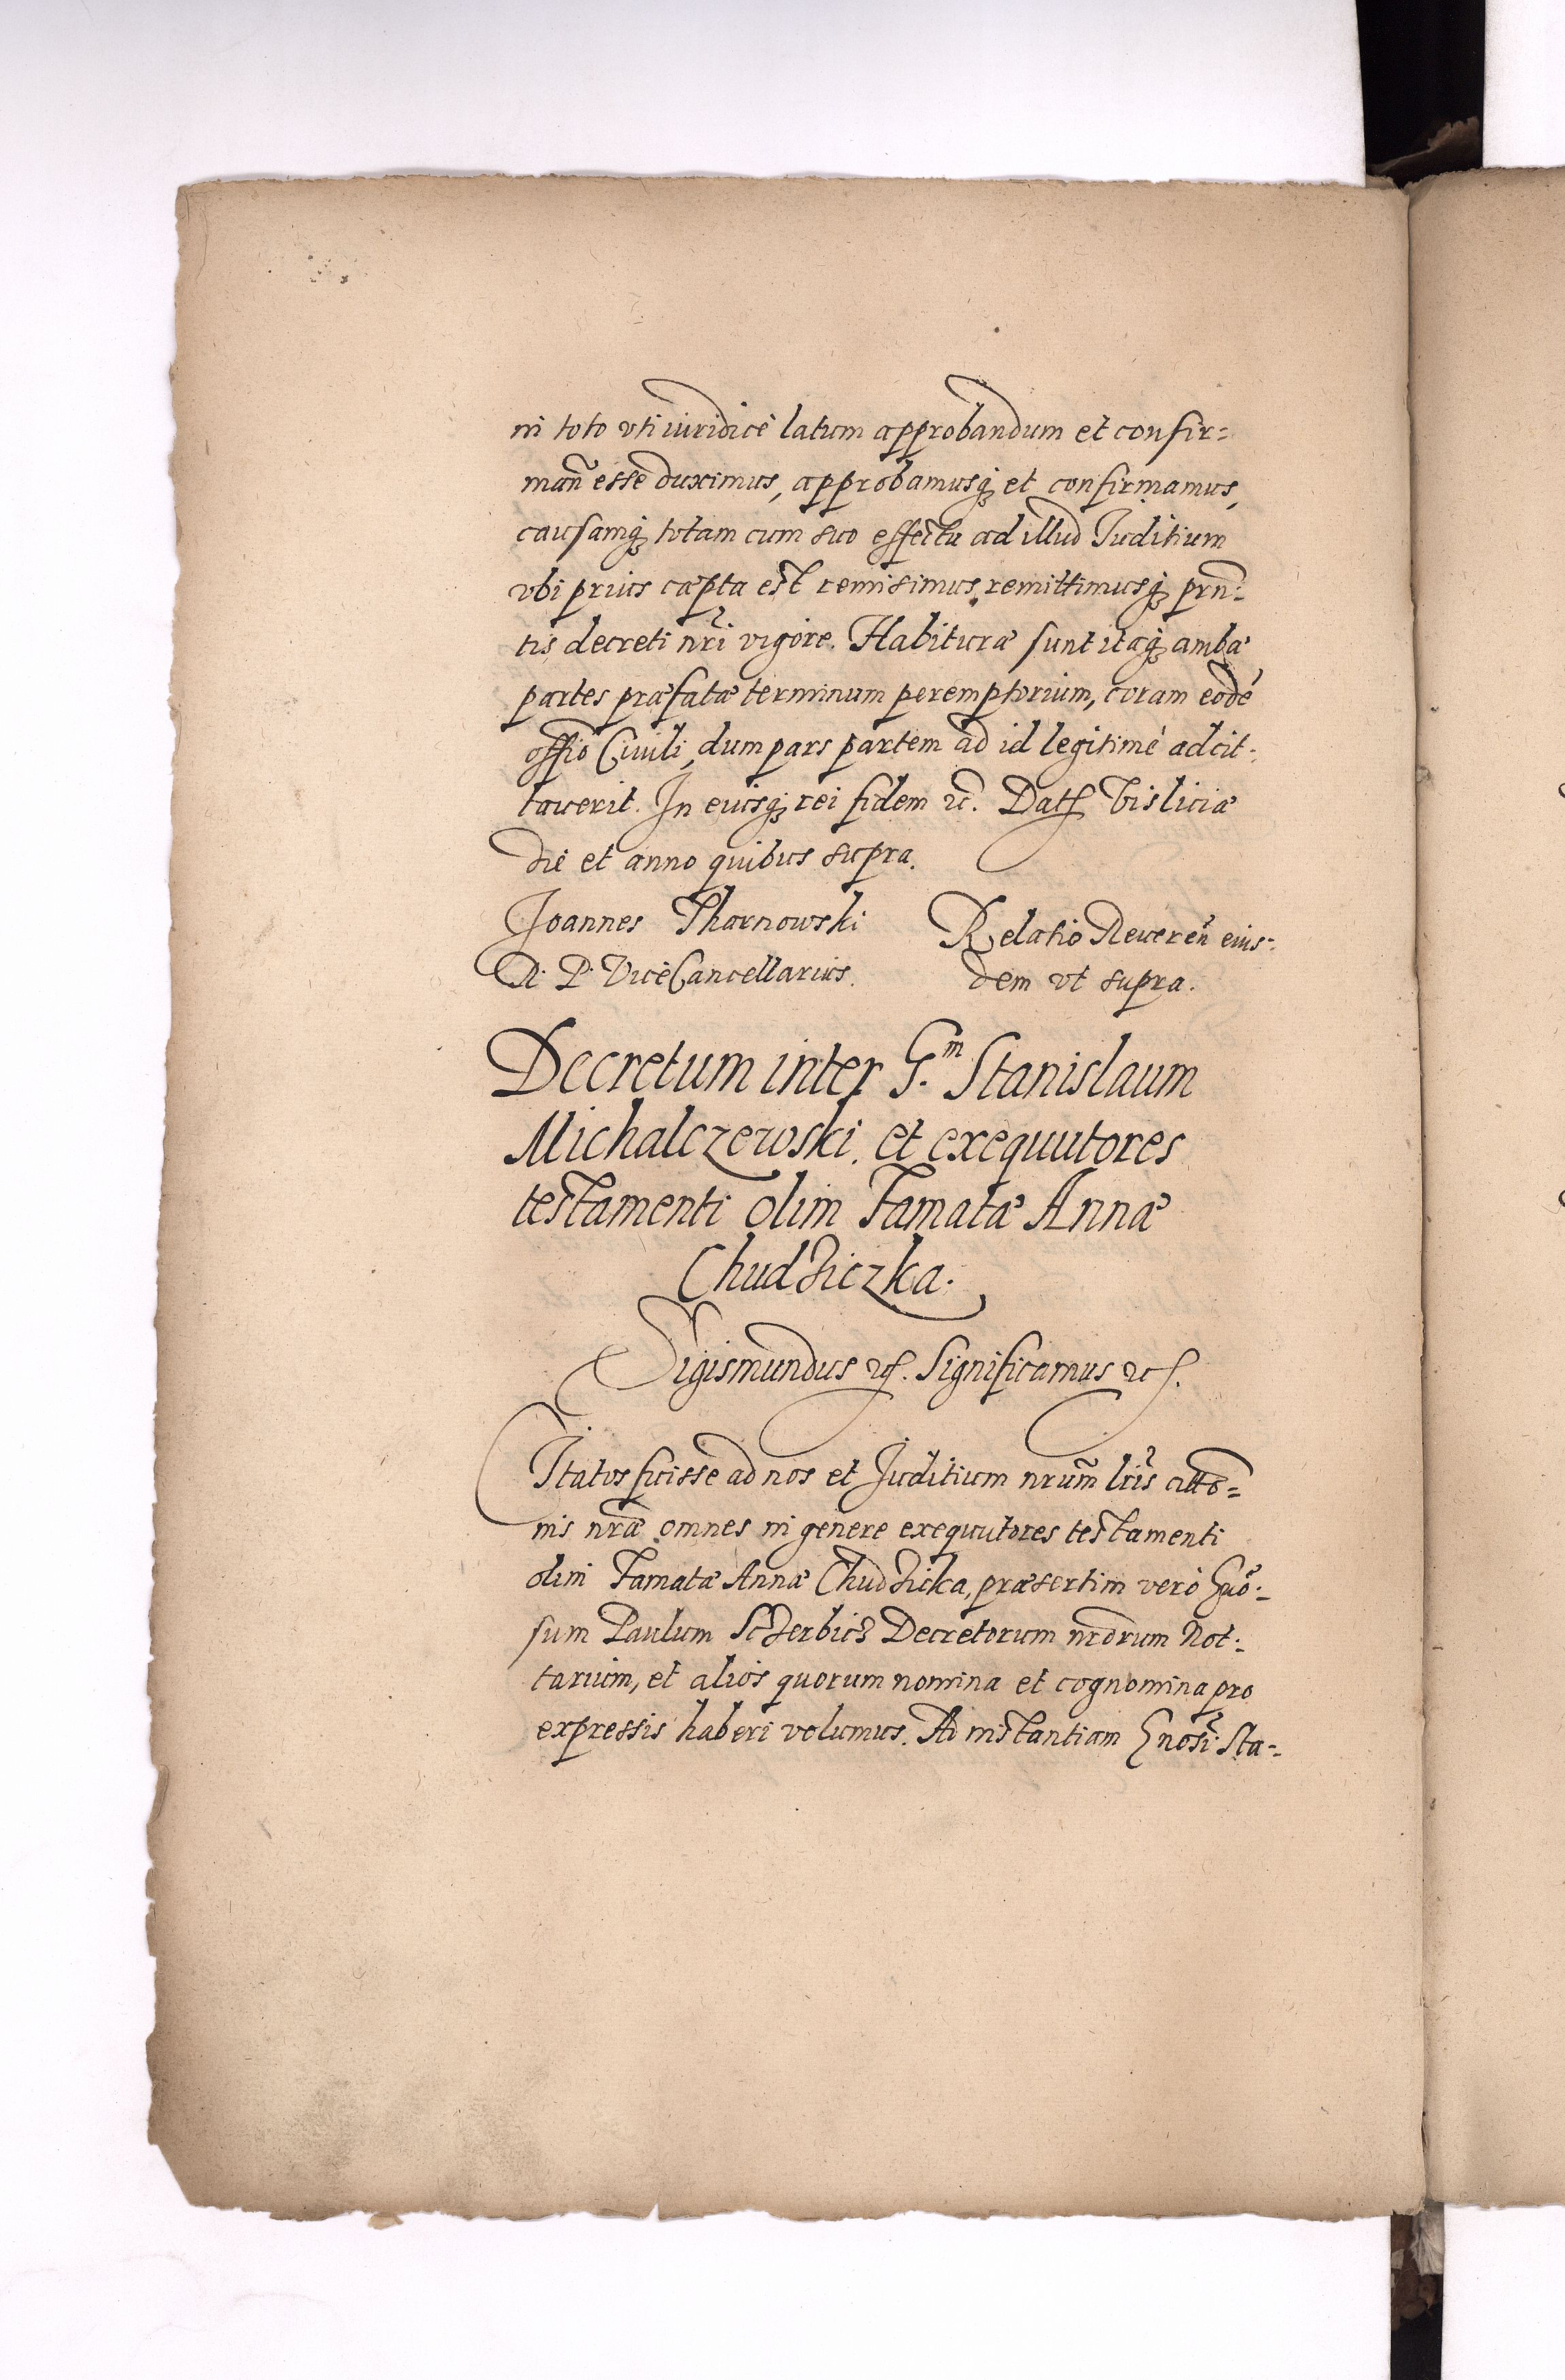 in toto vti iuridicè latum approbandum et confir=
mañ esse duximus, approbamusq₃ et confirmamus,
causamq₃ totam cum suo effectu ad illud Iuditium
vbi prius cæpta est remisimus, remittimusq₃ prñ=
tis decreti nr̃i vigore. Habituræ sunt itaq₃ ambæ
partes præfatæ terminum peremptorium, coram eodē
offiõ Ciuili, dum pars partem ad id legitimè adcit=
tauerit. In euisq₃ rei fidem etc. Dat Visliciæ
die et anno quibus supra.
Joannes Tharnowski
R. P. ViceCancellarius.
Relatio Reuereñ eius=
dem vt supra.
Decretum inter G.m Stanislaum
Michalczewski, et exequutores
testamenti olim Famatæ Annæ
Chudziczka.
Sigismundus etc. Significamus etc.
Citatos fuisse ad nos et Juditium nrum̃ lr̃is citto=
nis nr̃æ omnes in genere exequutores testamenti
olim Famatæ Annæ Chudzicka, præsertim verò Gnõ=
sum Paulum Sczerbicz Decretorum nrõrum Not=
tarium, et alios quorum nomina et cognomina pro
expressis haberi volumus. Ad instantiam Gnosi Sta=